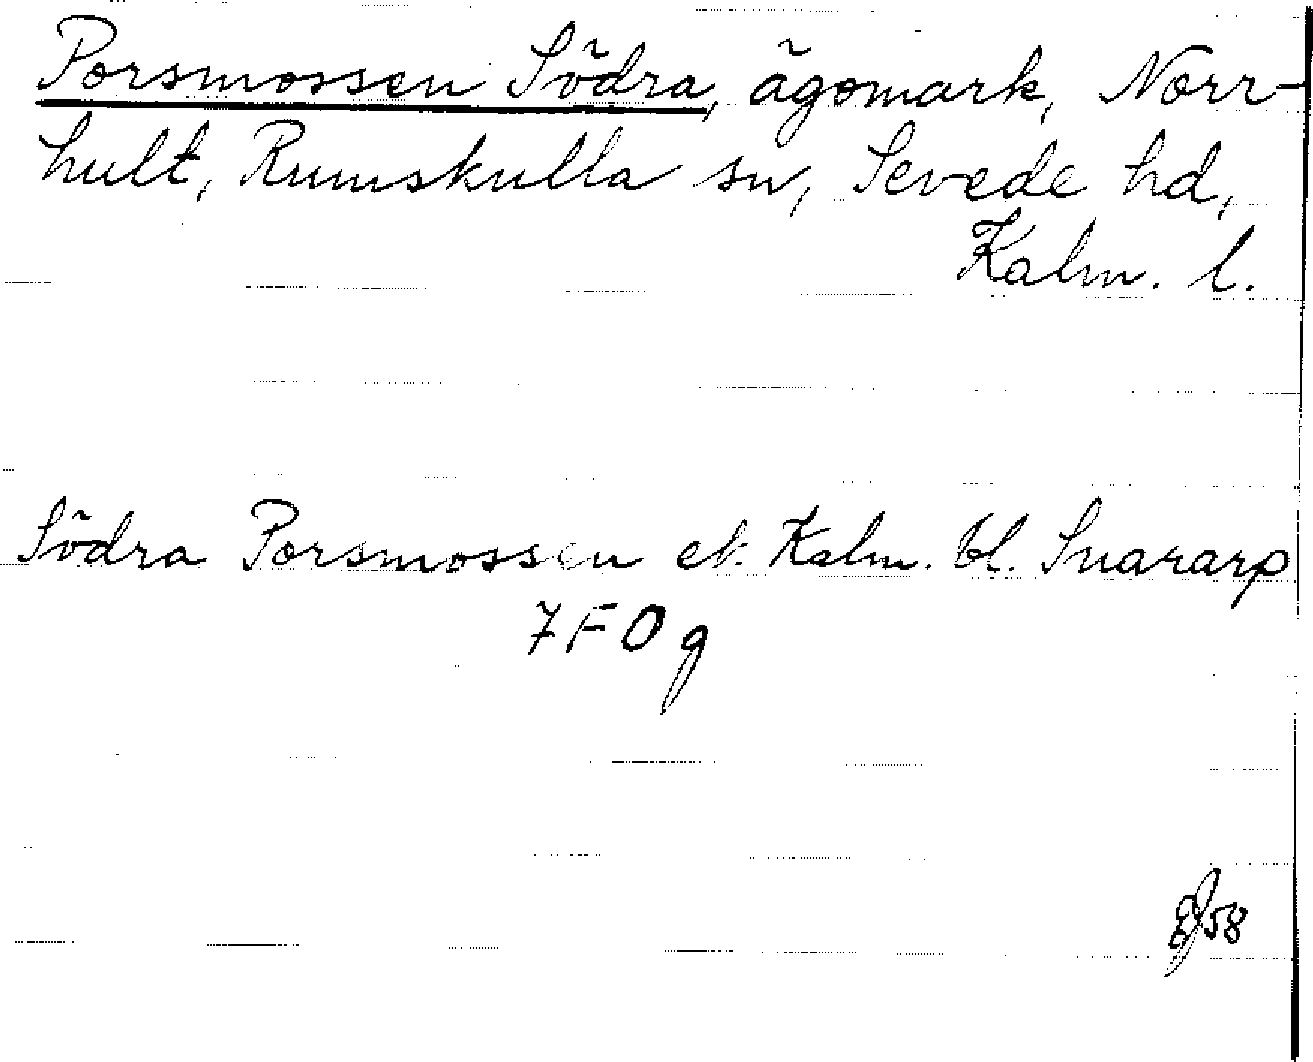 Porsmossen Södra, ägomark, Norr-
hult, Rumskulla sn, Sevede hd,
Kalm. l.
Södra Porsmossen ek. Kalm. bl. Snararp
7 F 0 g
58